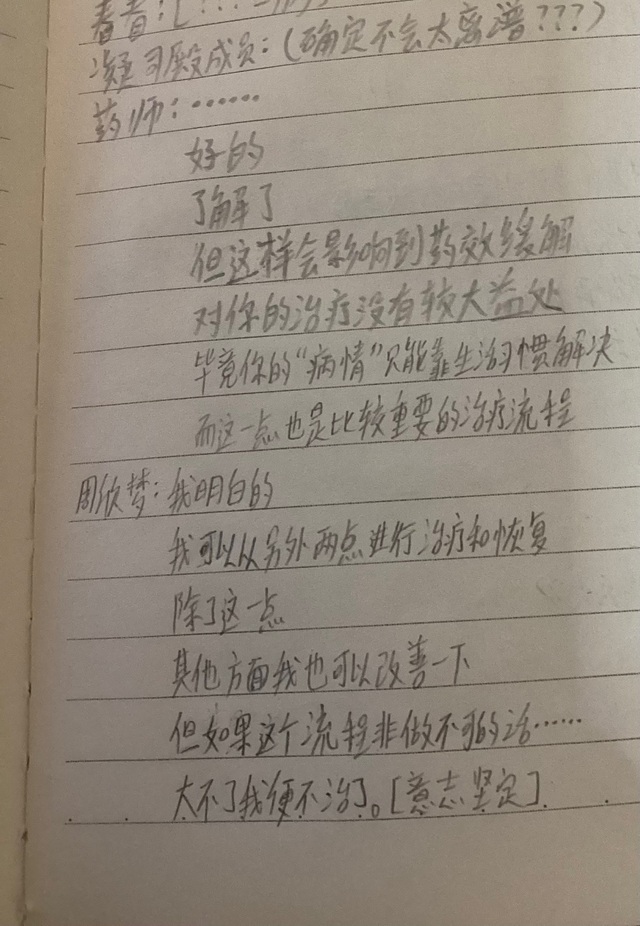 凝司殿成员：（确定不会太离谱？？？）
药师：……
好的
了解了
但这样会影响到药效缓解
对你的治疗没有较大益处
毕竟你的“病情”只能靠生活习惯解决
而这一点也是比较重要的治疗流程
周欣梦：我明白的
我可以从另外两点进行治疗和恢复
除了这一点
其他方面我也可以改善一下
但如果这个流程非做不可的话……
大不了我便不治了。[意志坚定]